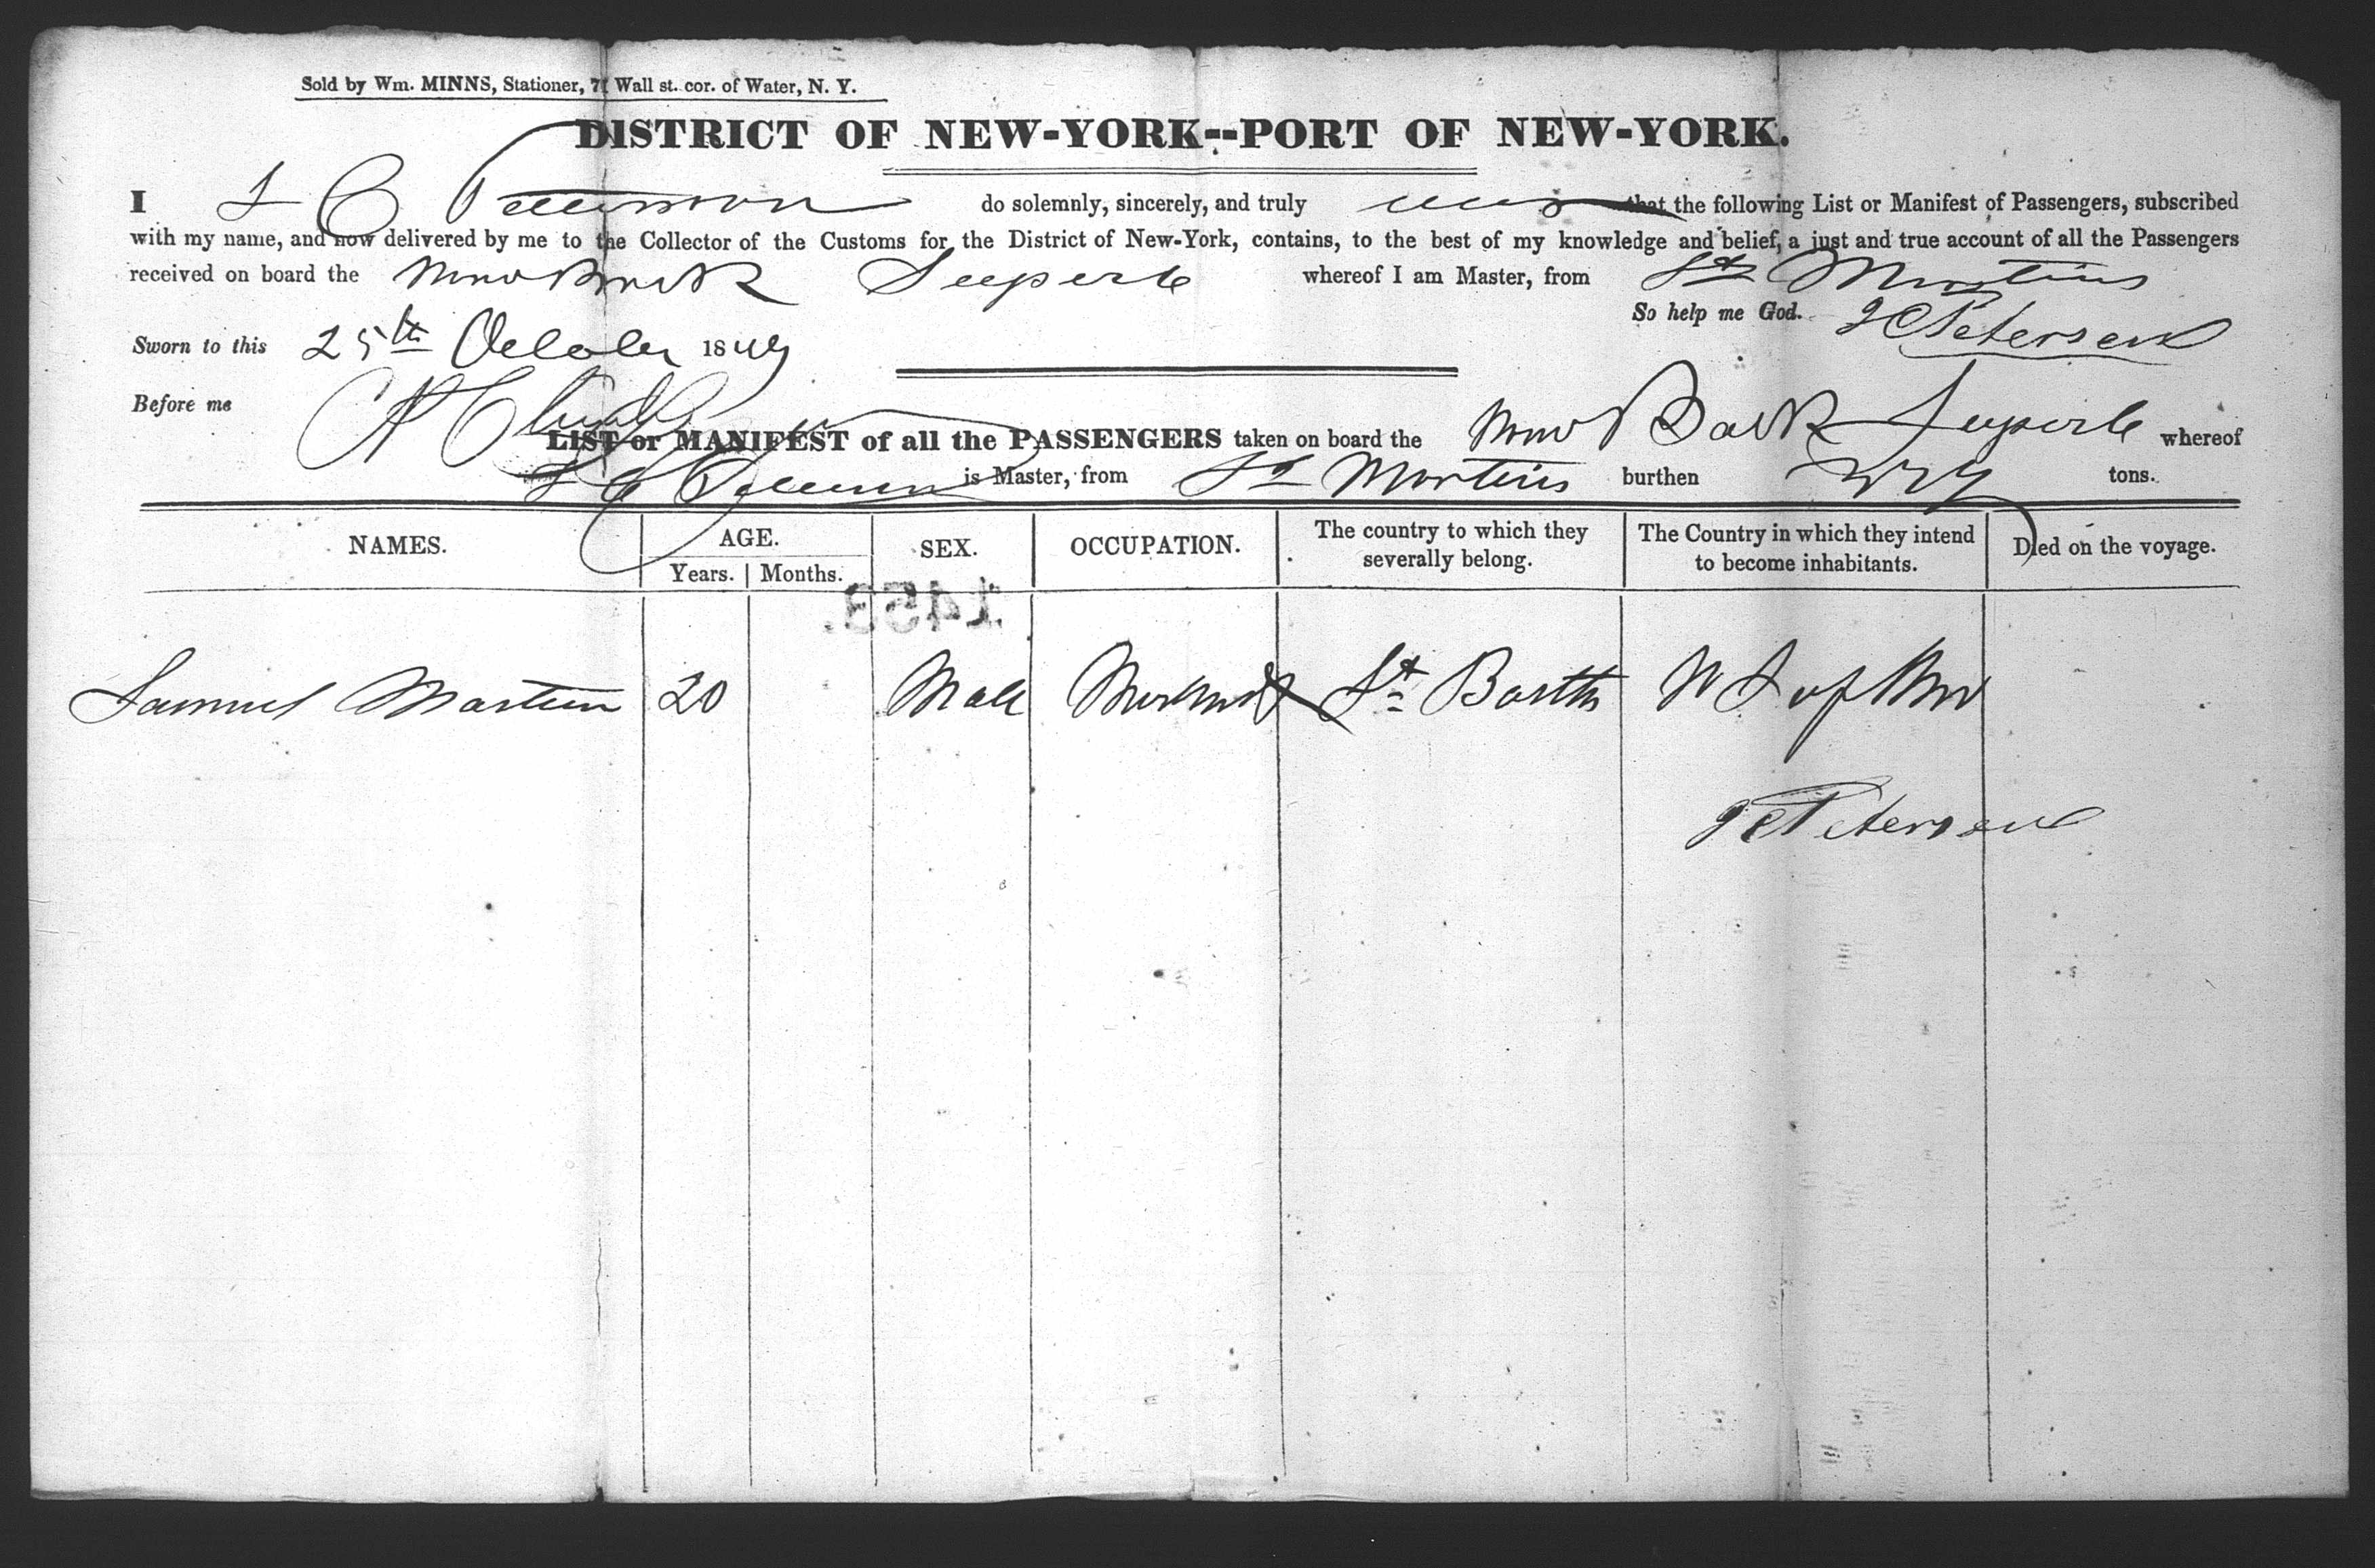 Sold by Wm. MINNS, Stationer, 71 Wall st. cor. of Water, N. Y.
DISTRICT OF NEW-YORK--PORT OF NEW-YORK.
I do solemnly, sincerely, and truly that the following List or Manifest of Passengers, subscribed
with my name, and now delivered by me to the Collector of the Customs for the District of New-York, contains, to the best of my knowledge and belief, a just and true account of all the Passengers
received on board the Superb whereof I am Master, from St Martins
So help me God. Petersen
Sworn to this 25th October 1849
Before me
LIST or MANIFEST of all the PASSENGERS taken on board the Bark Superb whereof
is Master, from St Martins burthen tons.
NAMES. AGE. SEX. OCCUPATION. The country to which they severally belong. The Country in which they intend to become inhabitants. Died on the voyage.
Years. Months.
1453.
Samuel Martin 20 Male St Barths
Petersen